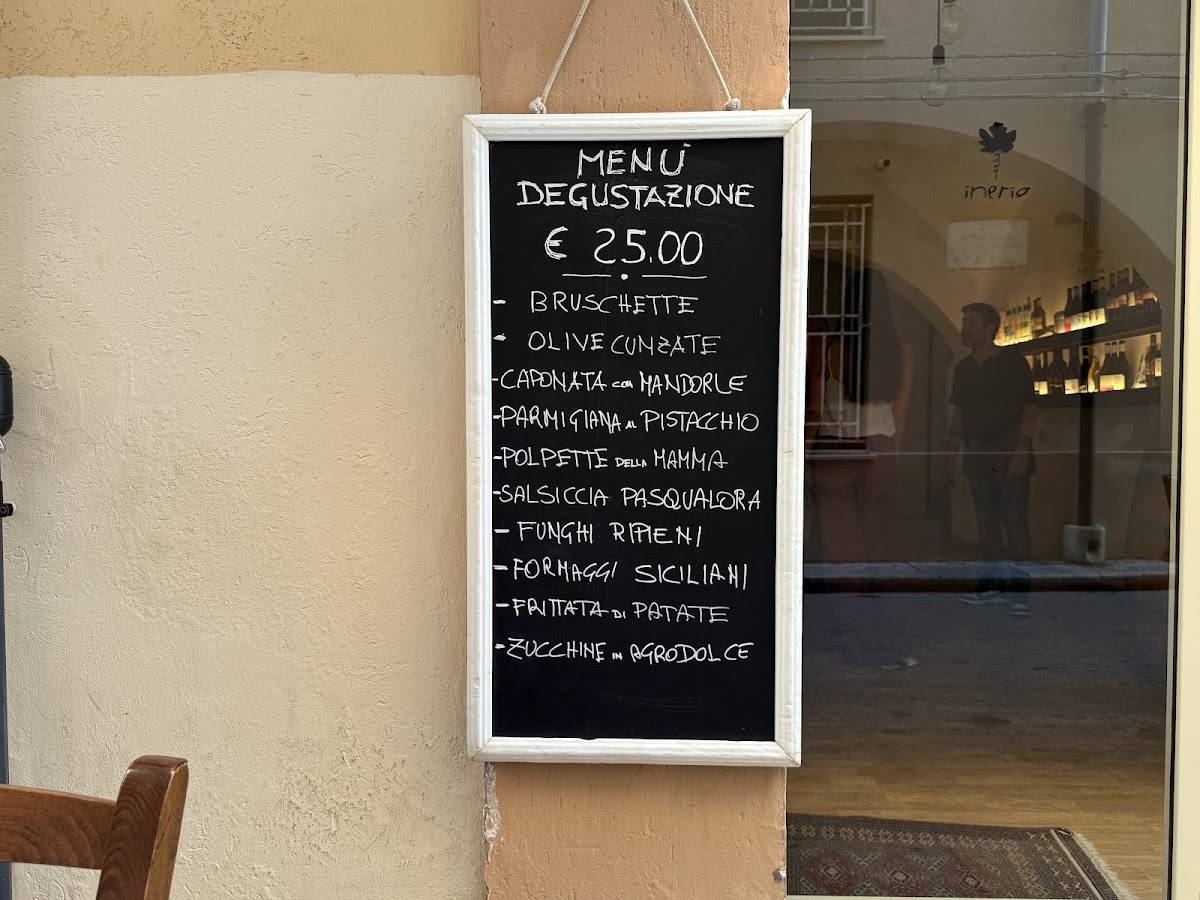 MENÙ
DEGUSTAZIONE
€ 25.00
- BRUSCHETTE
- OLIVE CUNZATE
- CAPONATA con MANDORLE
- PARMIGIANA AL PISTACCHIO
- POLPETTE DELLA MAMMA
- SALSICCIA PASQUALORA
- FUNGHI RIPIENI
- FORMAGGI SICILIANI
- FRITTATA DI PATATE
- ZUCCHINE IN AGRODOLCE
ineria